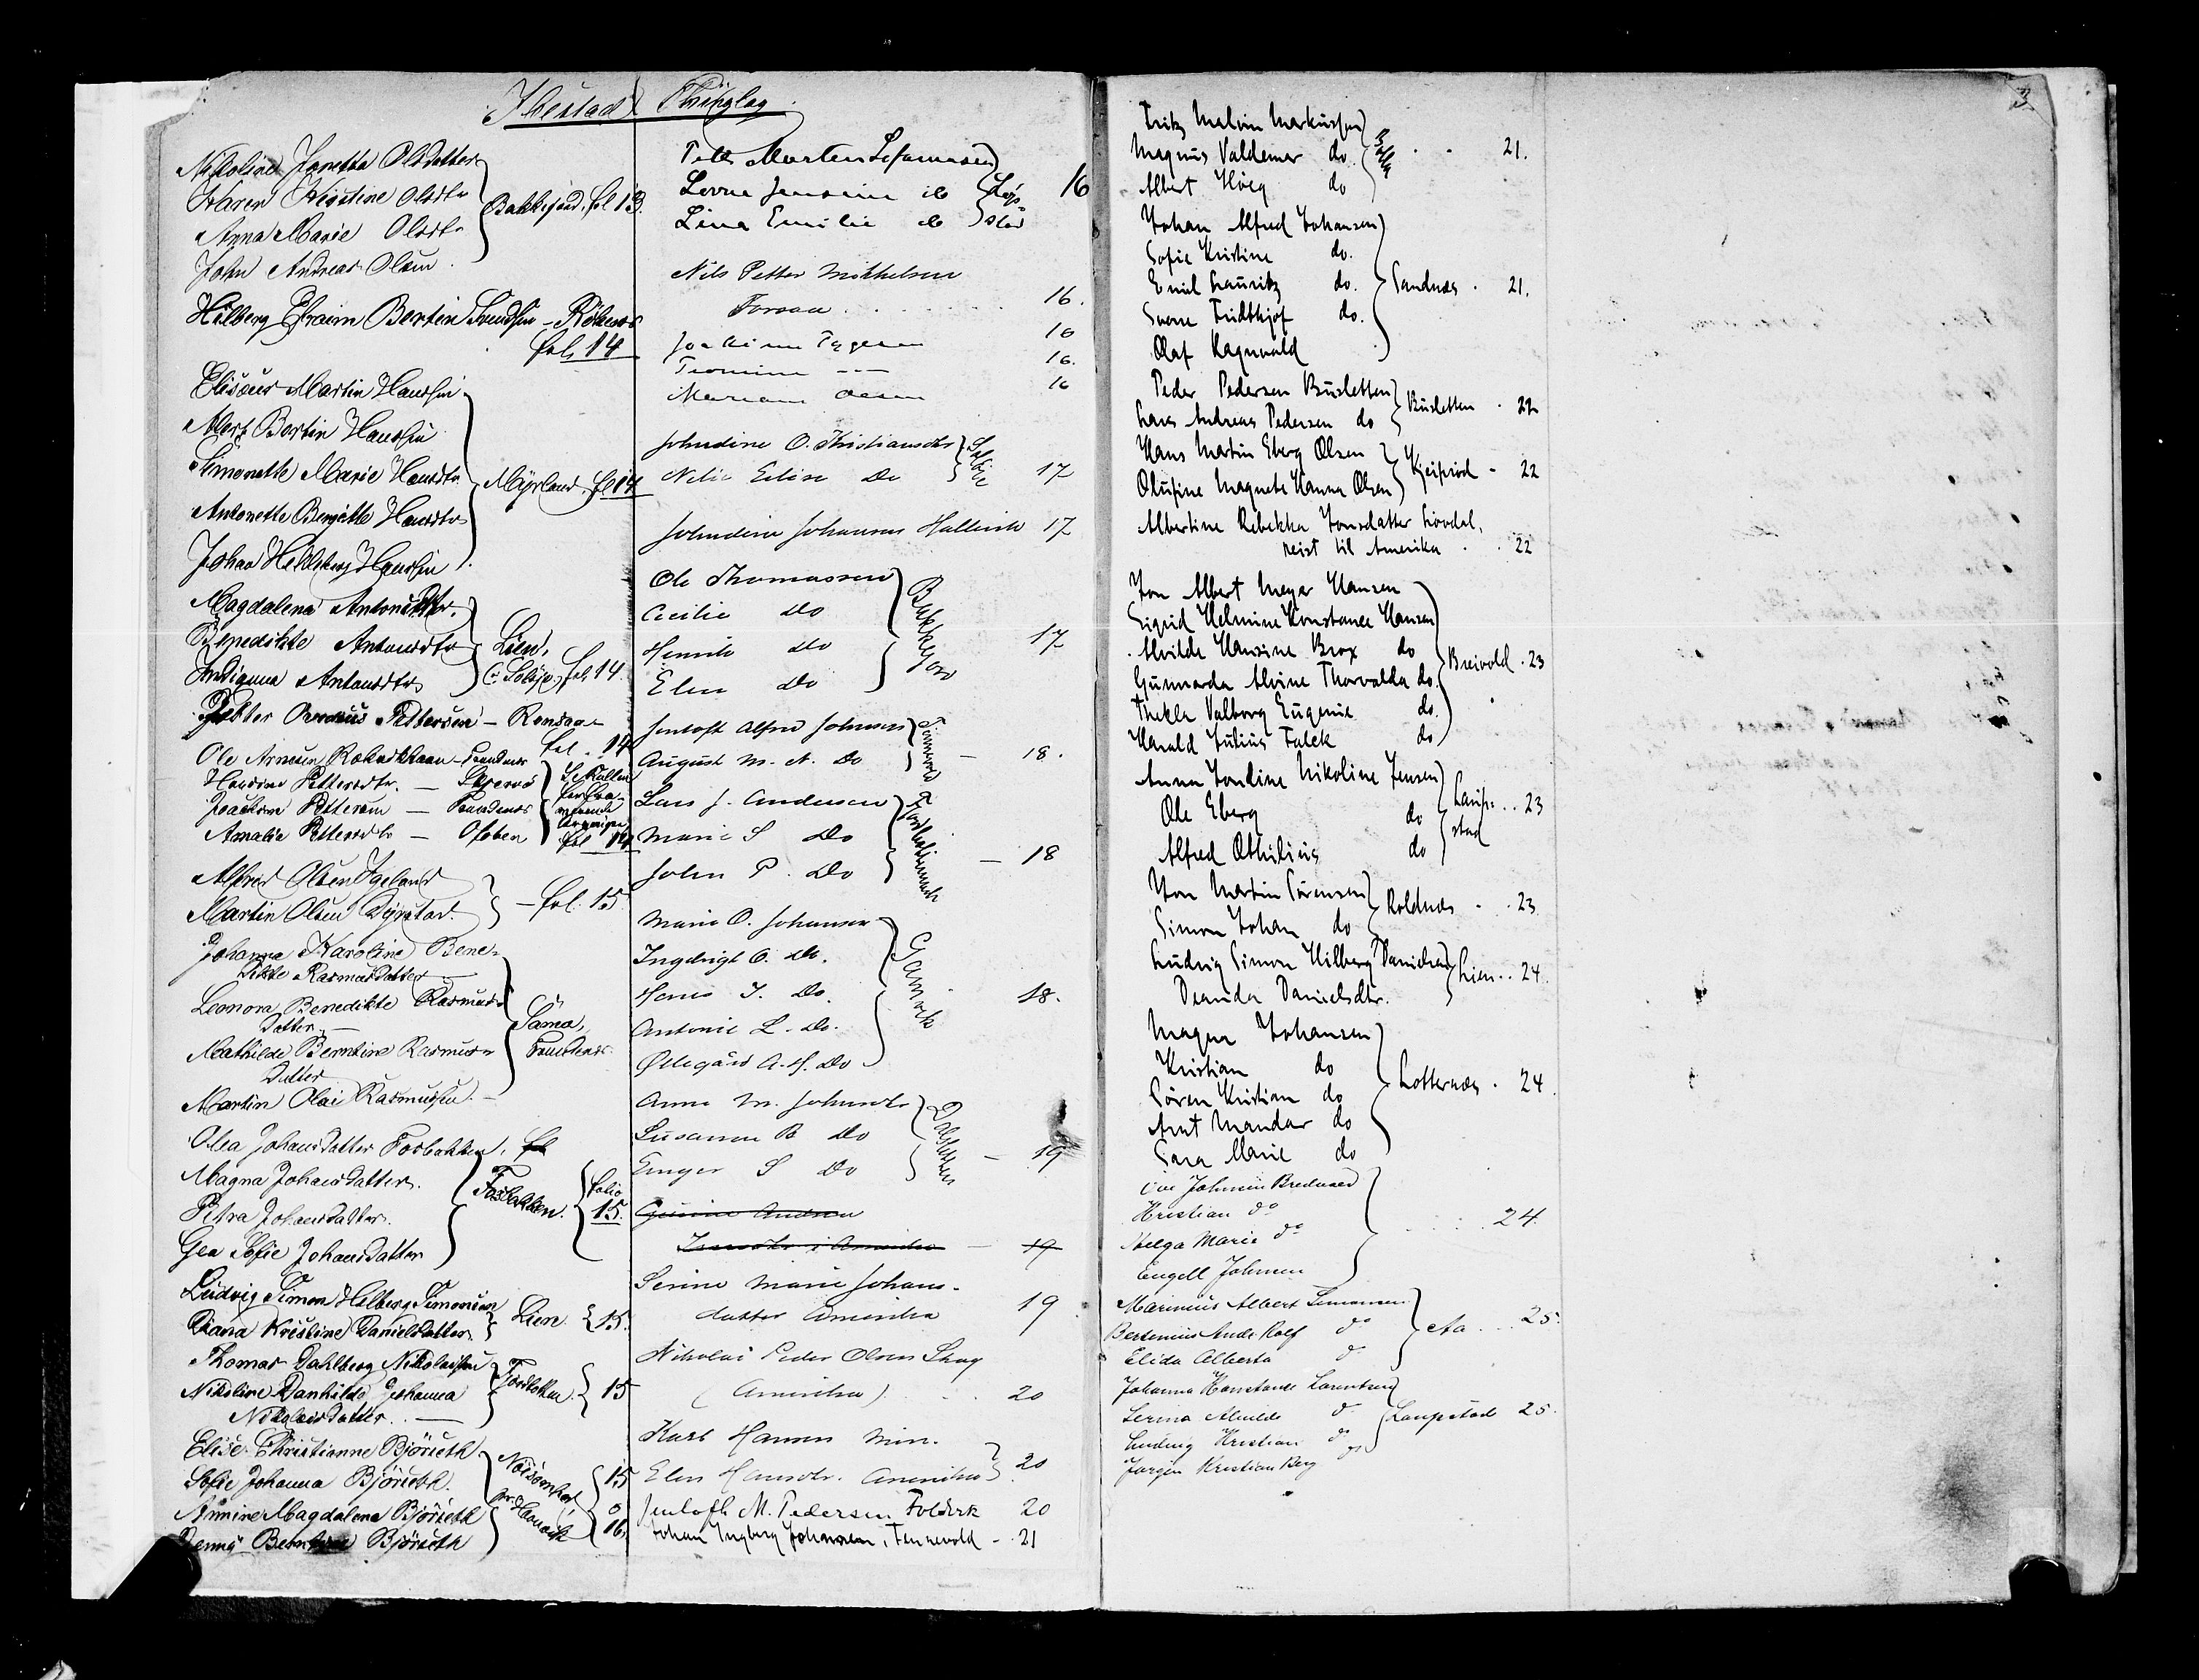 Ibestad Thinglag
Nikoline Janetta Olsdatter
Karen Kristine Olsdtr
Anna Marie Olsdtr
John Andreas Olsen
Bakkejord, fol 13.
Hilberg Efraim Bertin Svendsen - Rölnes
fol. 14
Elisæus Martin Hansen
Mort Bertin Hansen
Simonette Marie Hansdtr
Antonette Bergitte Hansdtr
Johan Heldberg Hansen
Myrland, fol 14
Magdalena Antonsdtr.
Benedikte Antonsdtr
Indiguna Antonsdtr
Lien, fol 14.
Petter Pettersen - Rensaa
fol. 14
Ole Arnesen
Hansine Pettersdtr.
Joackim Pettersen
Amalie Pettersdtr - Ofoten
fol 14
Alfred Olsen Ageland
Martin Olsen Dyrstad.
- fol. 15
Johanna Karoline Bene-
dikte Rasmusdatter
Leonora Benedikte Rasmus-
datter. -
Mathilde Berntine Rasmus-
datter
Martin Olai Rasmussen. -
Sama,
Olea Johansdatter Fosbakken, fol
Magna Johansdatter.
Petra Johansdatter.
Gea Sofie Johansdatter
Fosbakken.
folio 15.
Ludvig Simon Helberg Simonsen
Diana Kristine Danielsdatter
Lien. 15.
Thomas Dahlberg Nikolaisen
Nikoline Danhilde Johanna
Nikolaisdatter. -
15
Elise Christianne Björseth
Sofie Johanna Björseth.
Armine Magdalena Björseth
Jenny Berntine Björseth
15 o 16.
Morten
Lina Emilie do
16
Nils Petter Mikkelsen
Forsaa 16.
16
16.
16
Johndine O. Kristiansdtr
Nelie Eline Do
17
Johndine Johannes Hallevik 17
Ole Thomassen
Cecilie Do
Henrik Do
Elen Do
Bakkejord 17
Jentoft Alfred Johnsen
August M. A. Do
- 18.
Lars J. Andersen
Marie S Do
John P. Do
- 18
Marie O. Johansen
Ingebrigt O. do.
Hans J. Do.
Antonie L. Do.
Ollegård A. H. Do
Gamvik 18.
Anna M. Johnsdtr
Susanna B Do
Inger S Do
- 19
19
Serine Marie Johans-
datter Amerika 19
Nikolai Peder Olsen Skog
(Amerika) 20
Karl Hansen Min.
Elen Hansdtr. Amerika 20
Jentoft M. Pedersen Foldvik 20
Johan Ingberg Johansen, Tennevold - 21
3
Fritz Malvin Markussen
Magnus Valdemar do.
Albert Höeg do
21.
Johan Alfred Johansen
Sofie Kristine do.
Emil Lauritz do.
Sverre Fridthjof do.
Olaf Ragnvald
Sandnes . 21.
Peder Pedersen Busletten
Lars Andreas Pedersen do
Busletten . 22
Hans Martin Eberg Olsen
Olufine Magnete Hanna Olsen
22
Albertine Rebekka Jonsdatter Lövdal,
reist til Amerika . . 22
Jon Albert Meyer Hansen
Sigrid Helmine Konstance Hansen
Alvilde Hansine Brox do
Gunnarda Alvine Thorvalda do.
Thekla Valborg Eugenie do.
Harald Julius Falck do
Breivold . 23
Anna Jonline Nikoline Jensen
Ole Eberg do
Alfred Othilius do
Laup-
stad
. . 23
Jon Martin Sörensen
Simon Johan do
Roldnes . . 23
Ludvig Simon Hilberg Danielsen
Deanda Danielsdtr.
Lien . . 24.
Magna Johansen
Kristian do
Sören Kristian do
Arnt Mandar do
Sara Marie do
Lotternes . 24.
Ove Johnsen Bredesen
Kristian do
Helga Marie do
Engell Johnsen
24.
Marinius Albert Simonsen
Bertenius Ande Rolf do
Elida Alberta do
Aa . . . 25.
Johanna Konstance Lorentsen
Serina Alvilde do
Ludvig Kristian do
Jörgen Kristian Berg do
Laupstad 25.